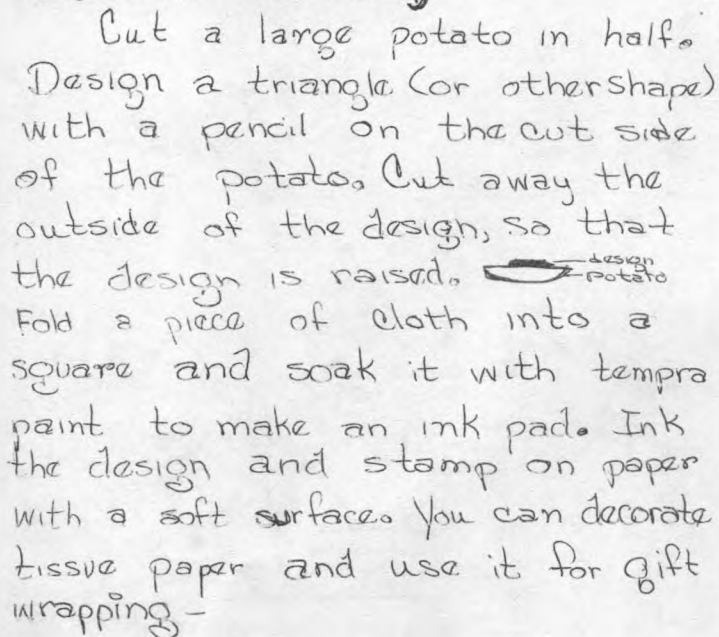 Cut a large potato in half.
Design a triangle (or other shape)
with a pencil on the cut side
of the potato. Cut away the
outside of the design, so that
the design is raised. design
potato
Fold a piece of cloth into a
square and soak it with tempra
paint to make an ink pad. Ink
the design and stamp on paper
with a soft surface. You can decorate
tissue paper and use it for gift
wrapping -